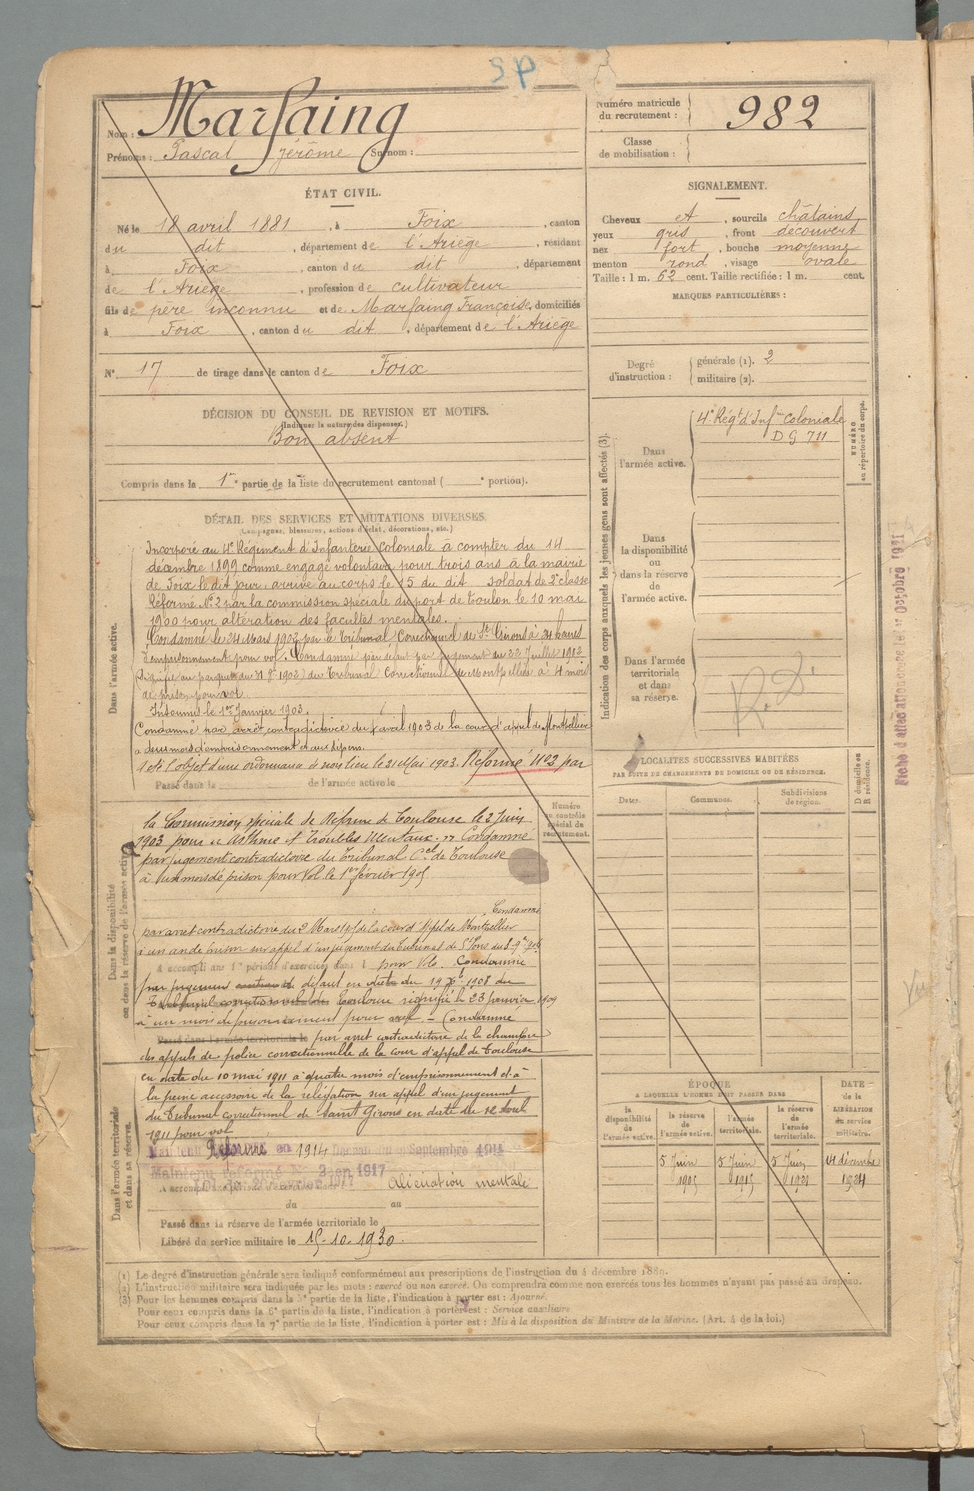 SP
Nom : Marfaing
Prénoms : Pascal Jérôme Surnom :
Numéro matricule du recrutement : 982
Classe de mobilisation :
ÉTAT CIVIL.
Né le 18 avril 1881, à Foix, canton
du dit, département de l'Ariège, résidant
à Foix, canton du dit, département
de l'Ariège, profession de cultivateur
fils de père inconnu et de Marfaing Françoise, domiciliés
à Foix, canton du dit, département de l'Ariège
N° 17 de tirage dans le canton de Foix
SIGNALEMENT.
Cheveux et, sourcils châtains
yeux gris, front découvert
nez fort, bouche moyenne
menton rond, visage ovale
Taille : 1 m. 62 cent. Taille rectifiée : 1 m. cent.
MARQUES PARTICULIÈRES :
Degré d'instruction : générale (1). 2
militaire (2).
DÉCISION DU CONSEIL DE REVISION ET MOTIFS.
(Indiquer la nature des dispenses.)
Bon absent
Compris dans la 1re partie de la liste du recrutement cantonal ( e portion).
DÉTAIL DES SERVICES ET MUTATIONS DIVERSES.
(Campagnes, blessures, actions d'éclat, décorations, etc.)
Dans l'armée active.
Incorporé au 4e Régiment d'Infanterie coloniale à compter du 14
décembre 1899 comme engagé volontaire pour trois ans à la mairie
de Foix le dit jour, arrivé au corps le 15 du dit soldat de 2e classe
Réformé No 2 par la commission spéciale du port de Toulon le 10 mai
1900 pour altération des facultés mentales.
Condamné le 24 Mars 1902 par le Tribunal Correctionnel de St Girons à
d'emprisonnement pour vol. Condamné par défaut par jugement du 22 Juillet 1902
du Tribunal Correctionnel de Montpellier à 4 mois
de prison pour vol.
Insoumis le 1er Janvier 1903.
Condamné par arrêt contradictoire du avril 1903 de la cour d'appel de Montpellier
à deux mois d'emprisonnement et aux dépens.
A été l'objet d'une ordonnance de non lieu le 21 Mai 1903. Réformé No 2 par
Passé dans la de l'armée active le
la Commission spéciale de Réforme de Toulouse le 2 Juin
1903 pour "Asthme et Troubles Mentaux." Condamné
par jugement contradictoire du Tribunal Cel de Toulouse
à un mois de prison pour Vol le 1er février 1905
Condamné
par arrêt contradictoire du 2 Mars de la cour d'Appel de Montpellier
à un an de prison sur appel d'un jugement du tribunal de St Pons
A accompli une 1re période d'exercices dans l pour Vol. Condamné
par jugement défaut en date du 19 1908 du
Tribunal correctionnel de Toulouse signifié le 23 janvier 1909
à un mois d'emprisonnement pour vol - Condamné
Passé dans l'armée territoriale le par arrêt contradictoire de la chambre
des appels de police correctionnelle de la cour d'appel de Toulouse
en date du 10 mai 1911 à quatre mois d'emprisonnement et à
la peine accessoire de la relégation sur appel d'un jugement
du Tribunal correctionnel de Saint Girons en date du
1911 pour vol
Maintenu Réformé en 1914 Septembre 1914
Maintenu réformé No 2 en 1917
Loi du 20 février 1917
A accompli une période d'exercices Aliénation mentale
du au
Passé dans la réserve de l'armée territoriale le
Libéré du service militaire le 15-10-1930.
Dans la disponibilité ou dans la réserve de l'armée active.
Dans l'armée territoriale et dans sa réserve.
Numéro au contrôle spécial du recrutement.
Indication des corps auxquels les jeunes gens sont affectés (3).
Dans l'armée active.
4e Régt d'Infie coloniale
DG 711
NUMÉRO au répertoire du corps.
Dans la disponibilité ou dans la réserve de l'armée active.
Dans l'armée territoriale et dans sa réserve.
LOCALITÉS SUCCESSIVES HABITÉES
PAR SUITE DE CHANGEMENTS DE DOMICILE OU DE RÉSIDENCE.
Dates. Communes. Subdivisions de région.
D domicile ou R résidence.
ÉPOQUE
A LAQUELLE L'HOMME DOIT PASSER DANS
la disponibilité de l'armée active. la réserve de l'armée active. l'armée territoriale. la réserve de l'armée territoriale.
DATE de la LIBÉRATION du service militaire.
5 Juin 5 Juin 5 Juin 14 décembre
1924
(1) Le degré d'instruction générale sera indiqué conformément aux prescriptions de l'instruction du 4 décembre 1889.
(2) L'instruction militaire sera indiquée par les mots : exercé ou non exercé. On comprendra comme non exercés tous les hommes n'ayant pas passé au drapeau.
(3) Pour les hommes compris dans la 5e partie de la liste, l'indication à porter est : Ajourné.
Pour ceux compris dans la 6e partie de la liste, l'indication à porter est : Service auxiliaire.
Pour ceux compris dans la 7e partie de la liste, l'indication à porter est : Mis à la disposition du Ministre de la Marine. (Art. 4 de la loi.)